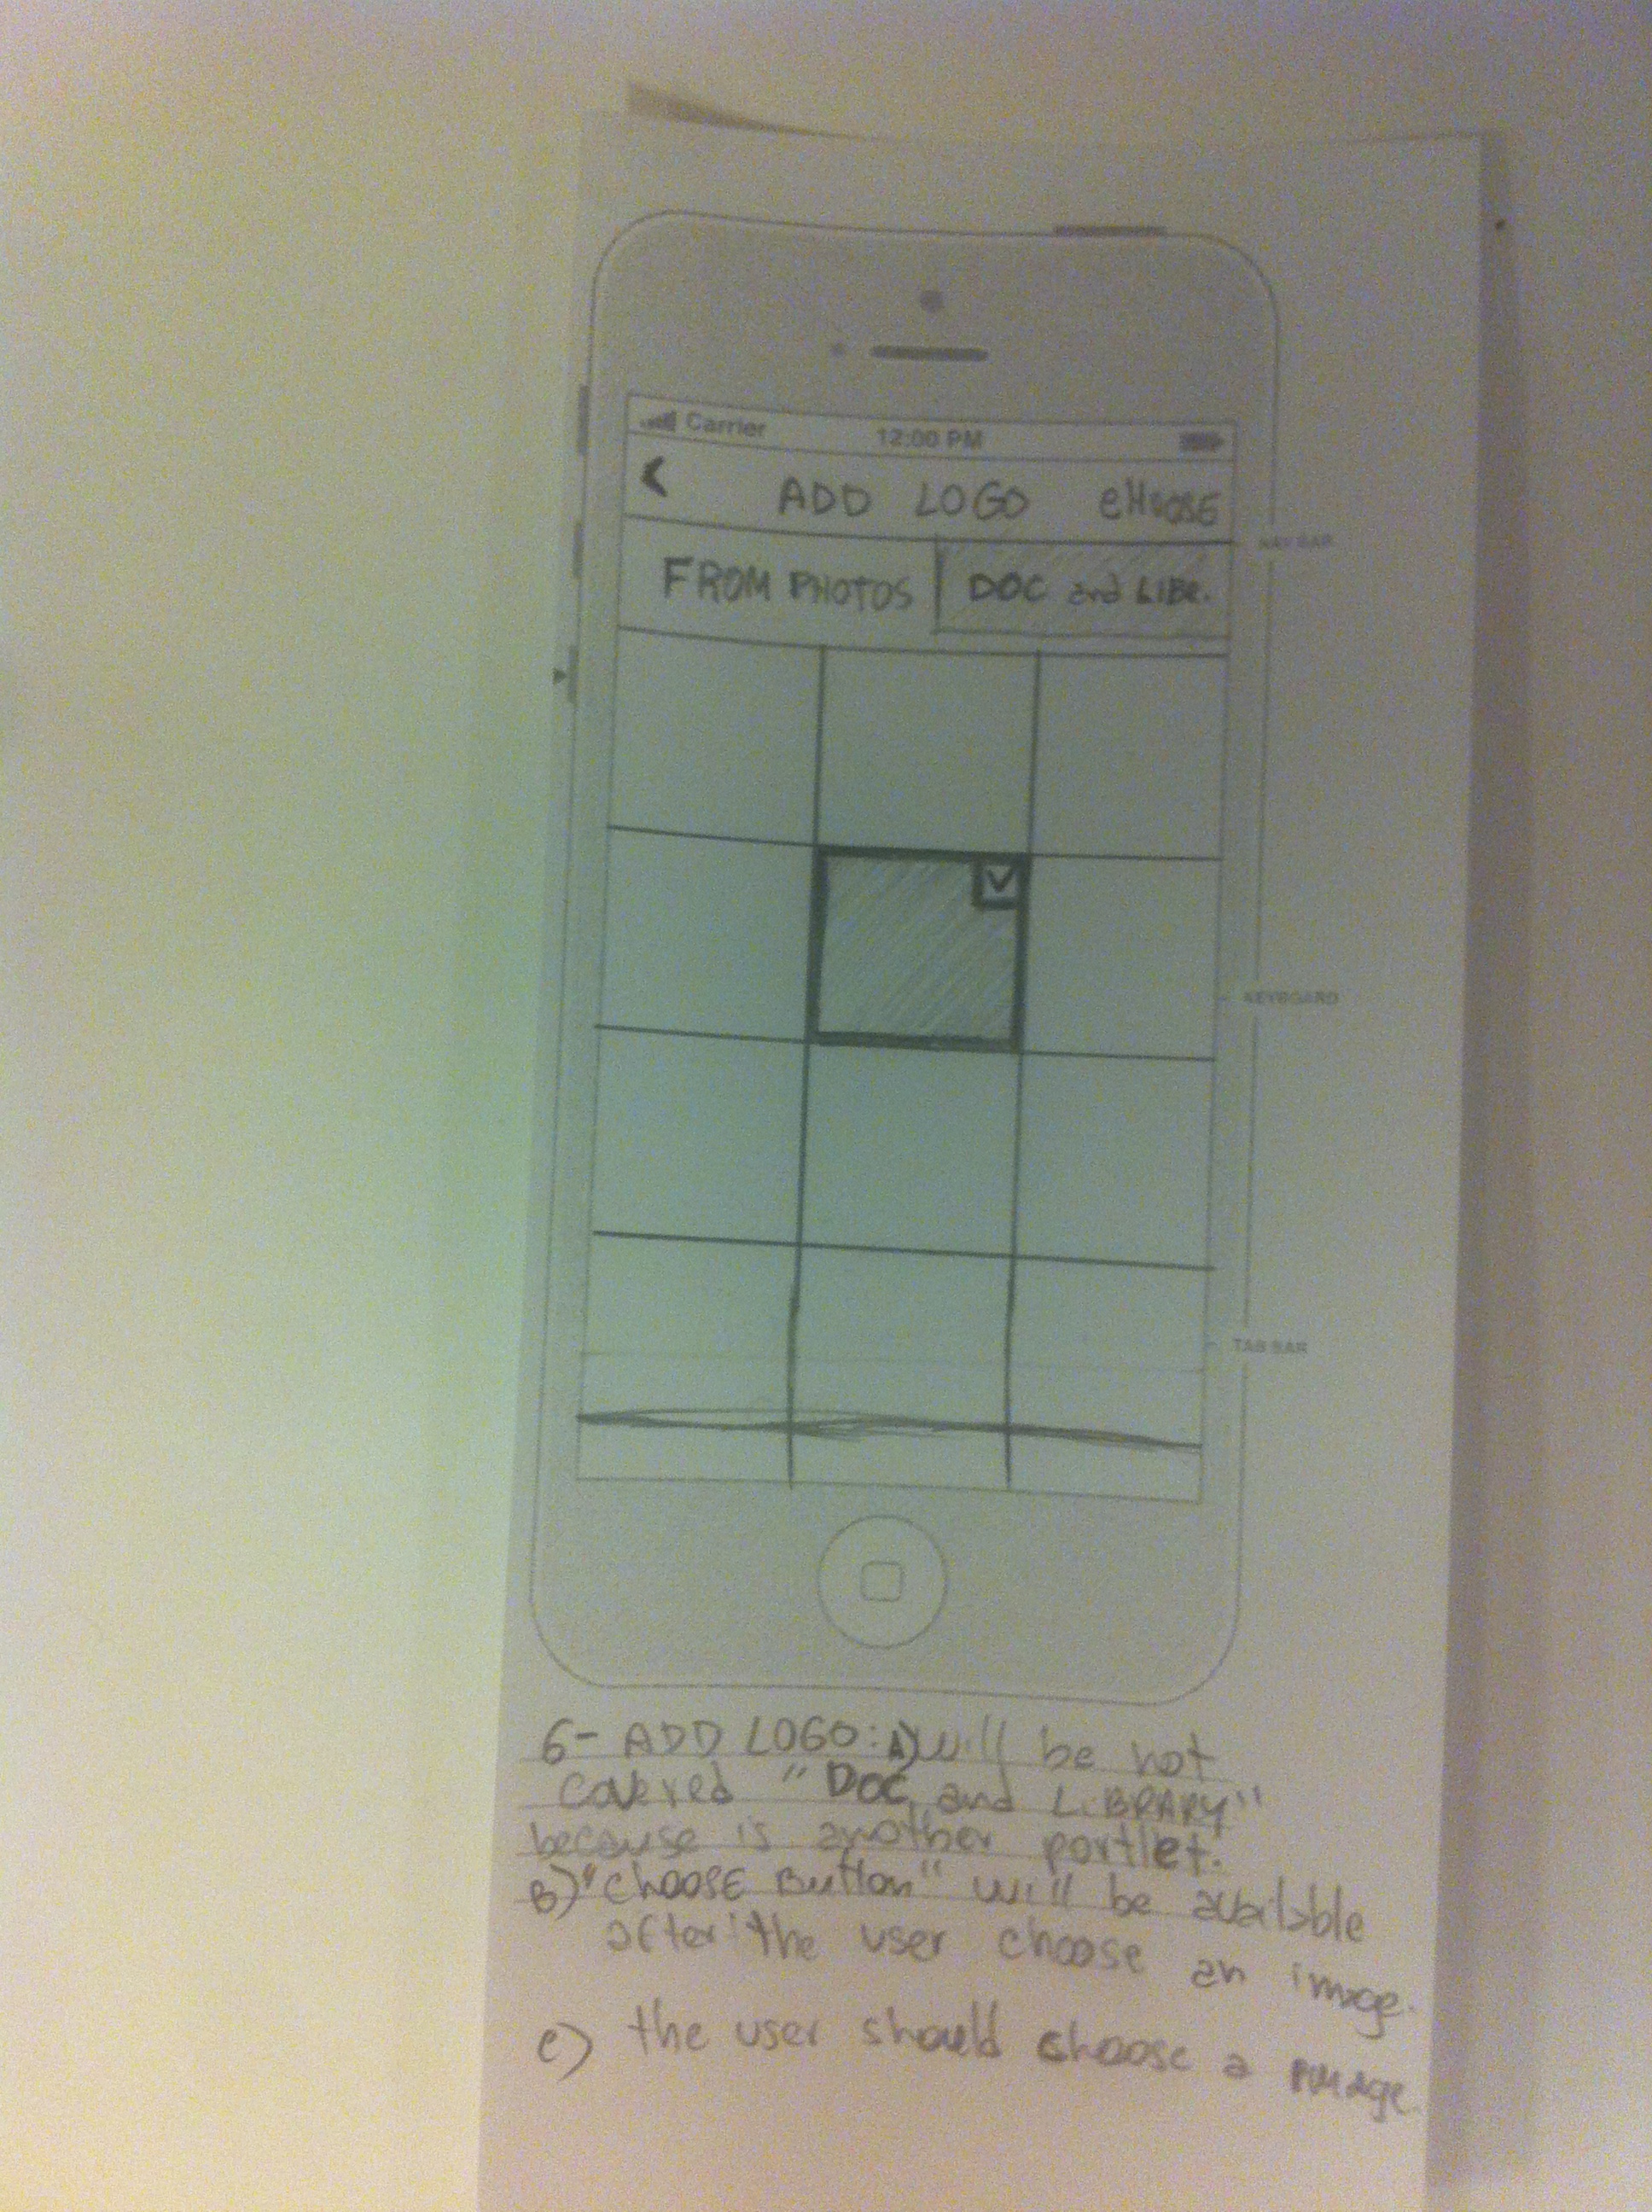 Carrier 12:00 PM
< ADD LOGO CHOOSE
NAV BAR
FROM PHOTOS DOC and LIBR.
KEYBOARD
TAB BAR
6- ADD LOGO: A) Will be not
covered "DOC and LIBRARY"
because is another portlet.
B) "CHOOSE Button" will be available
after the user choose an image.
C) the user should choose a image.